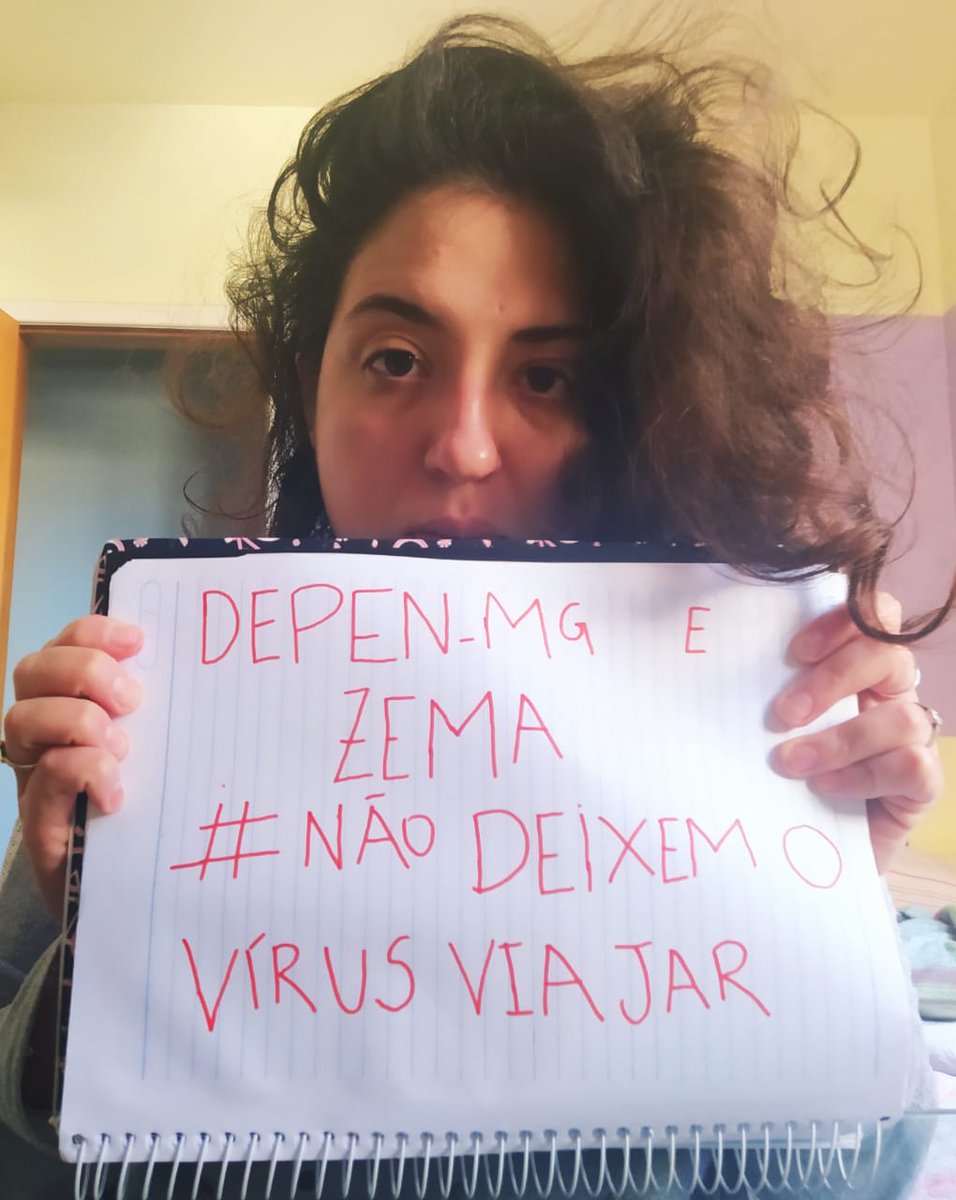 DEPEN-MG E
ZEMA
#NÃO DEIXEM O
VÍRUS VIAJAR